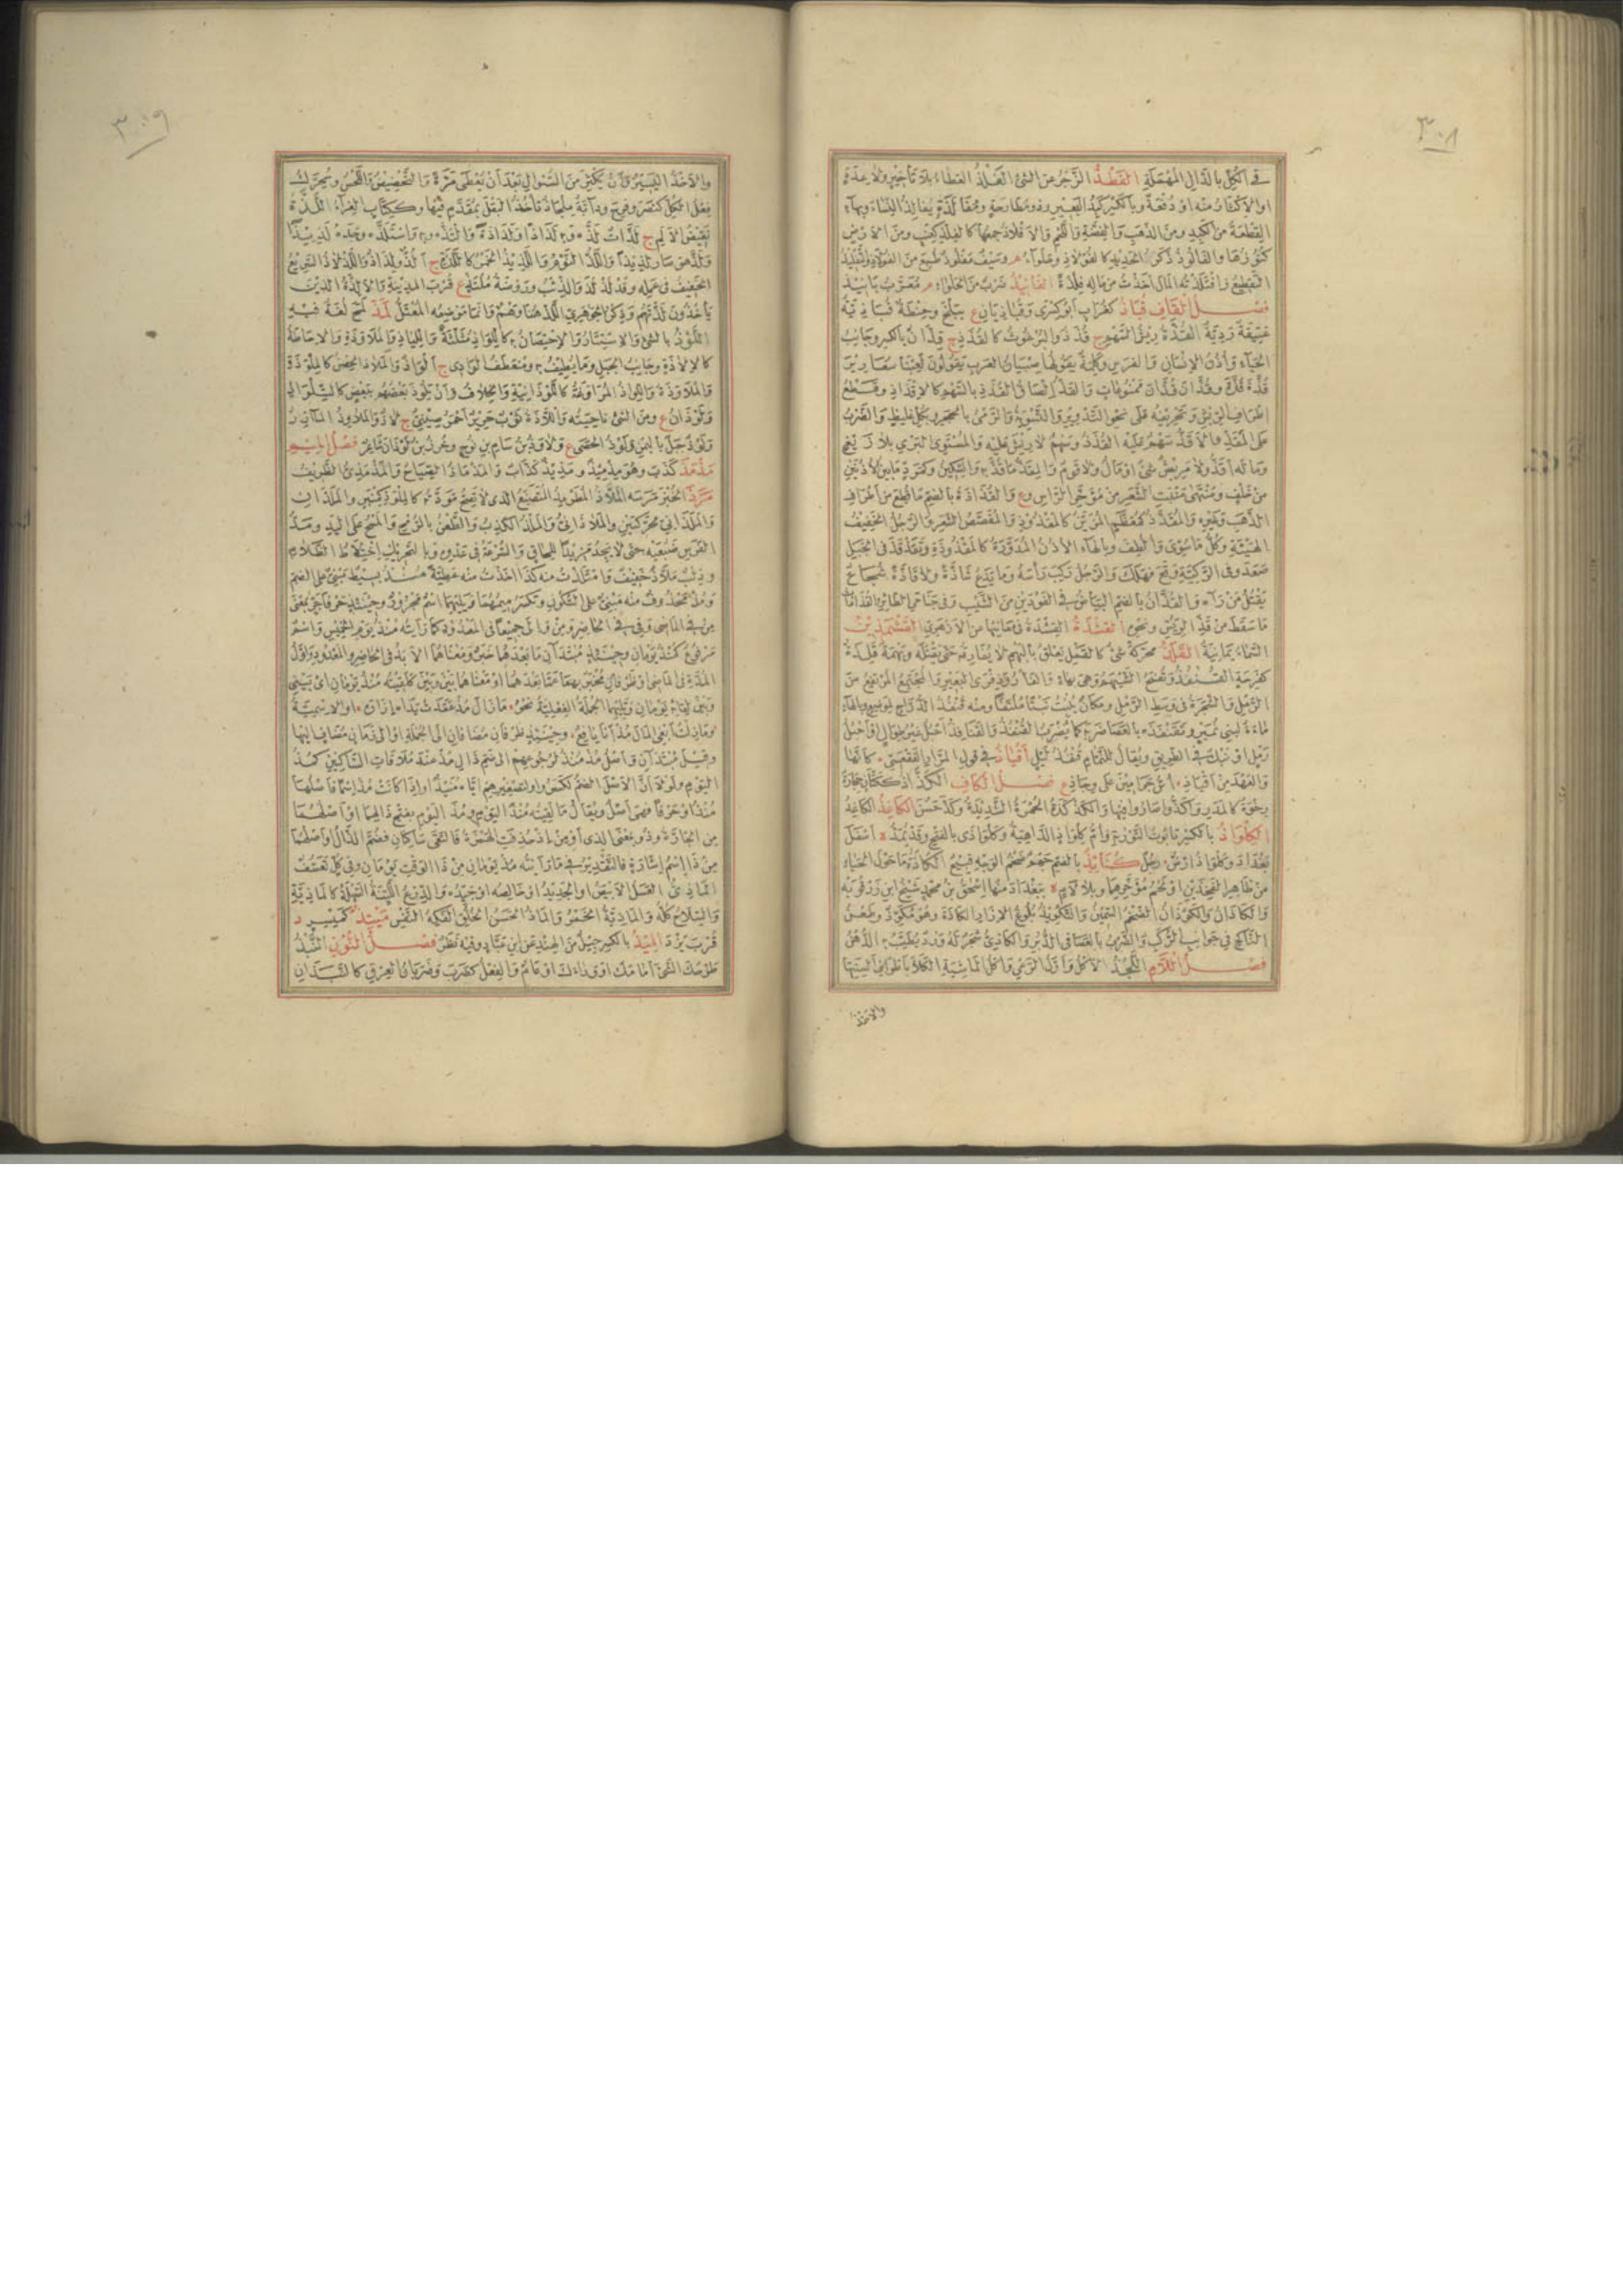 ٣٠٨
في الكل بالدال المهملة الفطذ الزجر عن الشئ الفلذ العطاء بلا تأخير ولا عدة
او الاكثار منه او دفعة وبالكسر كبد البعير وذو مطارحة ومفالذة يفالذ النساء وبهاء
القطعة من الكبد ومن الذهب والفضة واللحم والافلاذ جمعها كالفلذ كعنب ومن الارض
كنوزها والفالوذ ذكرة الحديد كالفولاذ وحلواء م وسيف مفلوذ طبع من الفولاذ والتفليذ
التقطيع وافتلذته المال اخذت من ماله فلذة الفانيذ ضرب من الحلواء م معرب بانيذ
فصل القاف قباذ كغراب ابو كسرى وقباذيان ع ببلخ وحنطة قباذية
عتيقة ردية القذة ريش السهم ج قذذ والبرغوث كالقذذ ج قذان بالكسر وجانب
الحياء واذن الانسان والفرس وكلمة يقولها صبيان العرب يقولون لعبنا شعارير
قذة قذة وقذان قذان ممنوعات والقذ الصاق القذذ بالسهم كالاقذاذ وقطع
اطراف الريش وتحريفه على نحو التدوير والتسوية والرمى بالحجر وبكل غليظ والضرب
على المقذ والاقذ سهم عليه القذذ وسهم لا ريش عليه والمستوى البري بلا زيغ
وما له اقذ ولا مريش شئ او مال ولا قوم والمقذ ما قذ به والسكين وكمرد ما بين الاذنين
من خلف ومنتهى منبت الشعر من مؤخر الراس وع والقذاذة بالضم ما قطع من اطراف
الذهب وغيره والمقذذ كمعظم المزين كالمقذوذ والمقصص الشعر والرجل الخفيف
الهيئة وكل ما سوى والطف وبالهاء الاذن المدورة كالمقذوذة وتقذقذ في الجبل
صعد وفى الركية وقع فهلك والرجل ركب رأسه وما يدع شاذة ولا قاذة شجاع
يقتل من رآه والقذان بالضم البياض في الفودين من الشيب وفى جناحي الطائر والقذاذات
ما سقط من قذ الريش ونحوه القشذة القشدة في معانيها عن الازهري القشمذين
السماء يمانية القلذ محركة شئ كالقمل يعلق بالبهم لا يفارقه حتى يقتله وبهمة قلذة
كفرحة القنفذ وتفتح الشيهم وهى بهاء والفأر وذفرى البعير والمجتمع المرتفع من
الرمل والشجرة في وسط الرمل ومكان ينبت نبتا ملتفا ومنه قنفذ الدراج لموضع وبالهاء
ماءة لبنى نمير وتقنفذه بالعصا ضربه كما يضرب القنفذ والقنافذ اجبل غير طوال او اجبل
رمل او نبك في الطريق ويقال للنمام قنفذ ليل اقياذ في قول المرار الفقعسي كانها
والعهد من اقياذ اس جراميز على وجاذ ع فصل الكاف الكذان ككتان حجارة
رخوة كالمدر واكذوا صاروا فيها والكذكذة الحمرة الشديدة وكذ خشن الكاغذ الكاغد
الكلواذ بالكسر تابوت التوراة وام كلواذ الداهية وكلواذى بالفتح وقد يمد ة اسفل
بغداد وكلواذ ارض رجل كنابذ بالضم جهم ضخم الوجه قبيح الكاذة ما حول الحياء
من ظاهر الفخذين او لحم مؤخرهما وبلا لام ة ببغداد منها اسحق بن محمد شيخ ابن رزقويه
والكاذان والكوذان الضخم السمين والتكويذ بلوغ الازار الكاذة وهو مكوذ وطعن
الناكح في جوانب الركب والضرب بالعصا في الدبر والكاذى شجر له ورد يطيب به الدهن
فصل اللام اللجذ الاكل واول الرعي واكل الماشية الكلأ باطراف السنتها
والاخذ
٣٠٩
والاخذ اليسير وان يكثر من السؤال بعد ان يعطى مرة والتحضيض واللحس ويحرك
فعل الكل كنصر وفرح ودابة ملجاذ تأخذ البقل بمقدم فيها وككتاب الغراء اللذة
نقيض الالم ج لذات لذه وبه لذاذا ولذاذة والتذه وبه واستلذه وجده لذيذا
ولذ هو صار لذيذا واللذ النوم واللذيذ الخمر كاللذة ج لذ ولذاذ واللذلاذ السريع
الخفيف في عمله وقد لذلذ والذئب وروضة ملتذ ع قرب المدينة والالذة الذين
يأخذون لذتهم وذكر الجوهري اللذ هنا وهم وانما موضعه المعتل لمذ لمج لغة فيه
اللوذ بالشئ والاستتار والاحتصان به كاللواذ مثلثة واللياذ والملاوذة والاحاطة
كالالاذة وجانب الجبل وما يطيف به ومنعطف الوادى ج الواذ والملاذ الحصن كالملوذة
والملاوذة واللواذ المراوغة كاللوذانية والخلاف وان يلوذ بعضهم ببعض كالتلواذ
ولوذان ع ومن الشئ ناحيته واللاذة ثوب حرير احمر صينى ج لاذ والملاوذ المآزر
ولوذ جبل باليمن ولوذ الحصى ع ولاوذ بن سام بن نوح وخر بن لوذان شاعر فصل الميم
مذمذ كذب وهو مذميذ ومذيذ كذاب والمذماذ الصياح والمذمذى الظريف
مرذ الخبز مرسه الملاذ المطرمذ المتصنع الذى لا تصح مودته كالملوذ كمنبر والملذان
والملذاني محركتين والملاذانى والملذ الكذب والطعن بالرمح والمسح على اليد ومد
الفرس ضبعيه حتى لا يجد مزيدا للحاق والسرعة في عدوه وبالتحريك اختلاط الظلام
وذئب ملاذ خفيف وامتلذت منه كذا اخذت منه عطية منذ بسيط مبنى على الضم
ومذ محذوف منه مبنى على السكون وتكسر ميمهما ويليهما اسم مجرور وحينئذ حرفا جر بمعنى
من في الماضى وفى في الحاضر ومن والى جميعا في المعدود كما رأيته منذ يوم الخميس واسم
مرفوع كمنذ يومان وحينئذ مبتدآن ما بعدهما خبر ومعناهما الامد في الحاضر والمعدود واول
المدة في الماضى او ظرفان مخبر بهما عما بعدهما او معناهما بين وبين كلقيته منذ يومان اى بينى
وبين لقائه يومان وتليهما الجملة الفعلية نحو ما زال مذ عقدت يداه ازاره او الاسمية
وما زلت ابغى المال مذ انا يافع وحينئذ ظرفان مضافان الى الجملة او الى زمان مضاف اليها
وقيل مبتدآن واصل مذ منذ لرجوعهم الى ضم ذال مذ عند ملاقاة الساكنين كمذ
اليوم ولولا ان الاصل الضم لكسروا ولتصغيرهم اياه منيذ او اذا كانت مذ اسما فاصلها
منذ او حرفا فهى اصل ويقال ما لقيته منذ اليوم ومذ اليوم بفتح ذالهما او اصلهما
من الجارة وذو بمعنى الذى او من اذ حذفت الهمزة فالتقى ساكنان فضم الذال او اصلها
من ذا اسم اشارة فالتقدير في ما رأيته مذ يومان من ذا الوقت يومان وفى كل تعسف
الماذى العسل الابيض او الجديد او خالصه او جيده والدرع اللينة السهلة كالماذية
والسلاح كله والماذية الخمر والماذ الحسن الخلق الفكه النفس ميبذ كميسر د
قرب يزد الميذ بالكسر جيل من الهند عن ابن عباد وفيه نظر فصل النون النبذ
طرحك الشئ امامك او وراءك او عام والفعل كضرب وضربان العرق كالنبذان